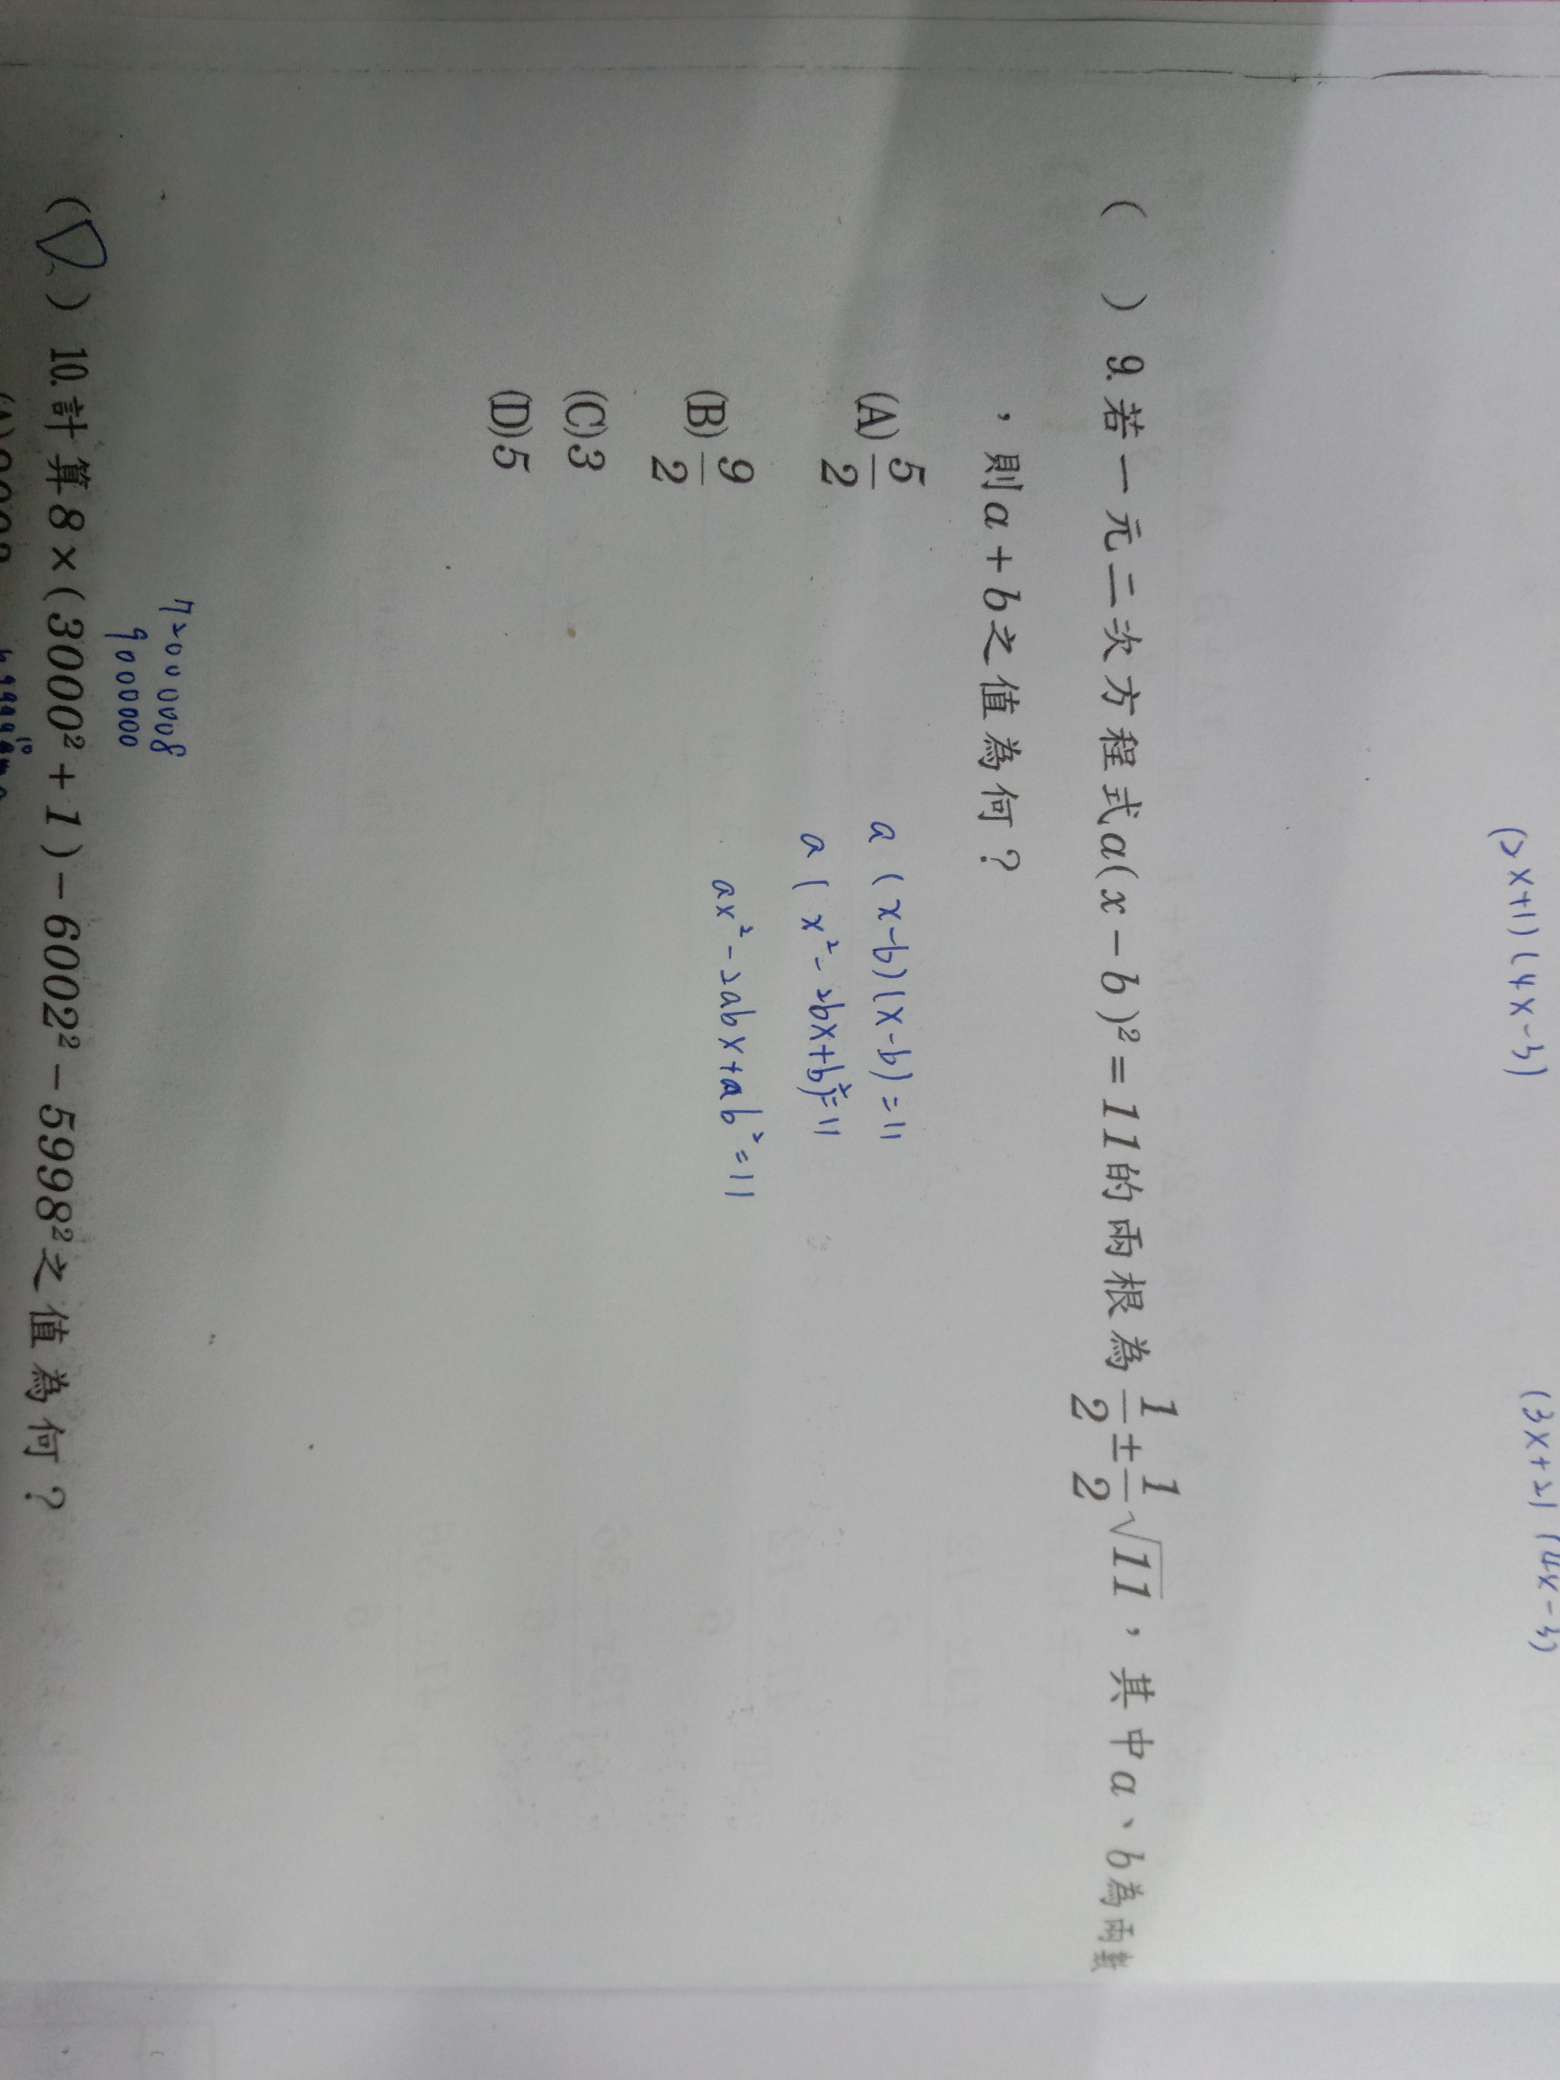 (2x+1)(4x-3)
(3x+2)(4x-3)
(　) 9. 若一元二次方程式a(x－b)²＝11的兩根為1/2±1/2√11，其中a、b為兩數
，則a＋b之值為何？
a(x-b)(x-b)=11
(A) 5/2
a(x²-2bx+b²)=11
(B) 9/2
ax²-2abx+ab²=11
(C) 3
(D) 5
72000008
9000000
(D) 10. 計算8×(3000²＋1)－6002²－5998²之值為何？